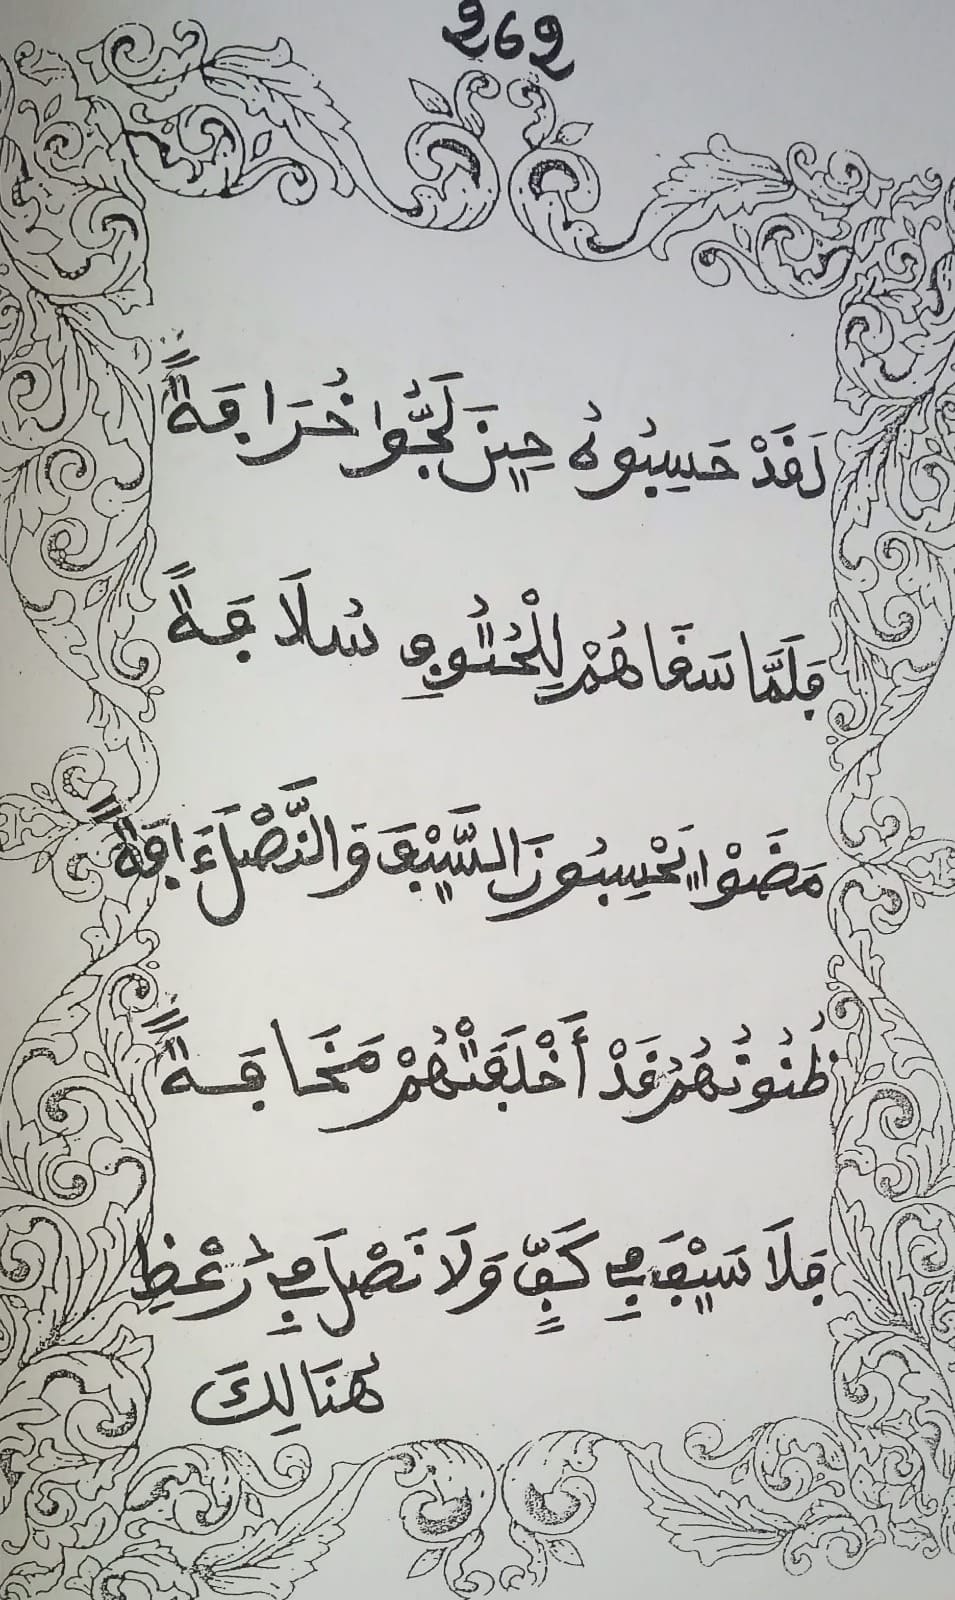 262
لَقَدْ حَسِبُوهُ حِينَ لَجُّوا خُرَافَةً
فَلَمَّا سَقَاهُمْ لِلْحُتُوفِ سُلَافَةً
مَضَوْا يَحْسِبُونَ السَّيْفَ وَالنَّصْلَ ءَافَةً
ظُنُونُهُمُ قَدْ أَخْلَفَتْهُمْ مَخَافَةً
فَلَا سَيْفَ فِي كَفٍّ وَلَا نَصْلَ فِي رُعْظِ
هُنَالِكَ